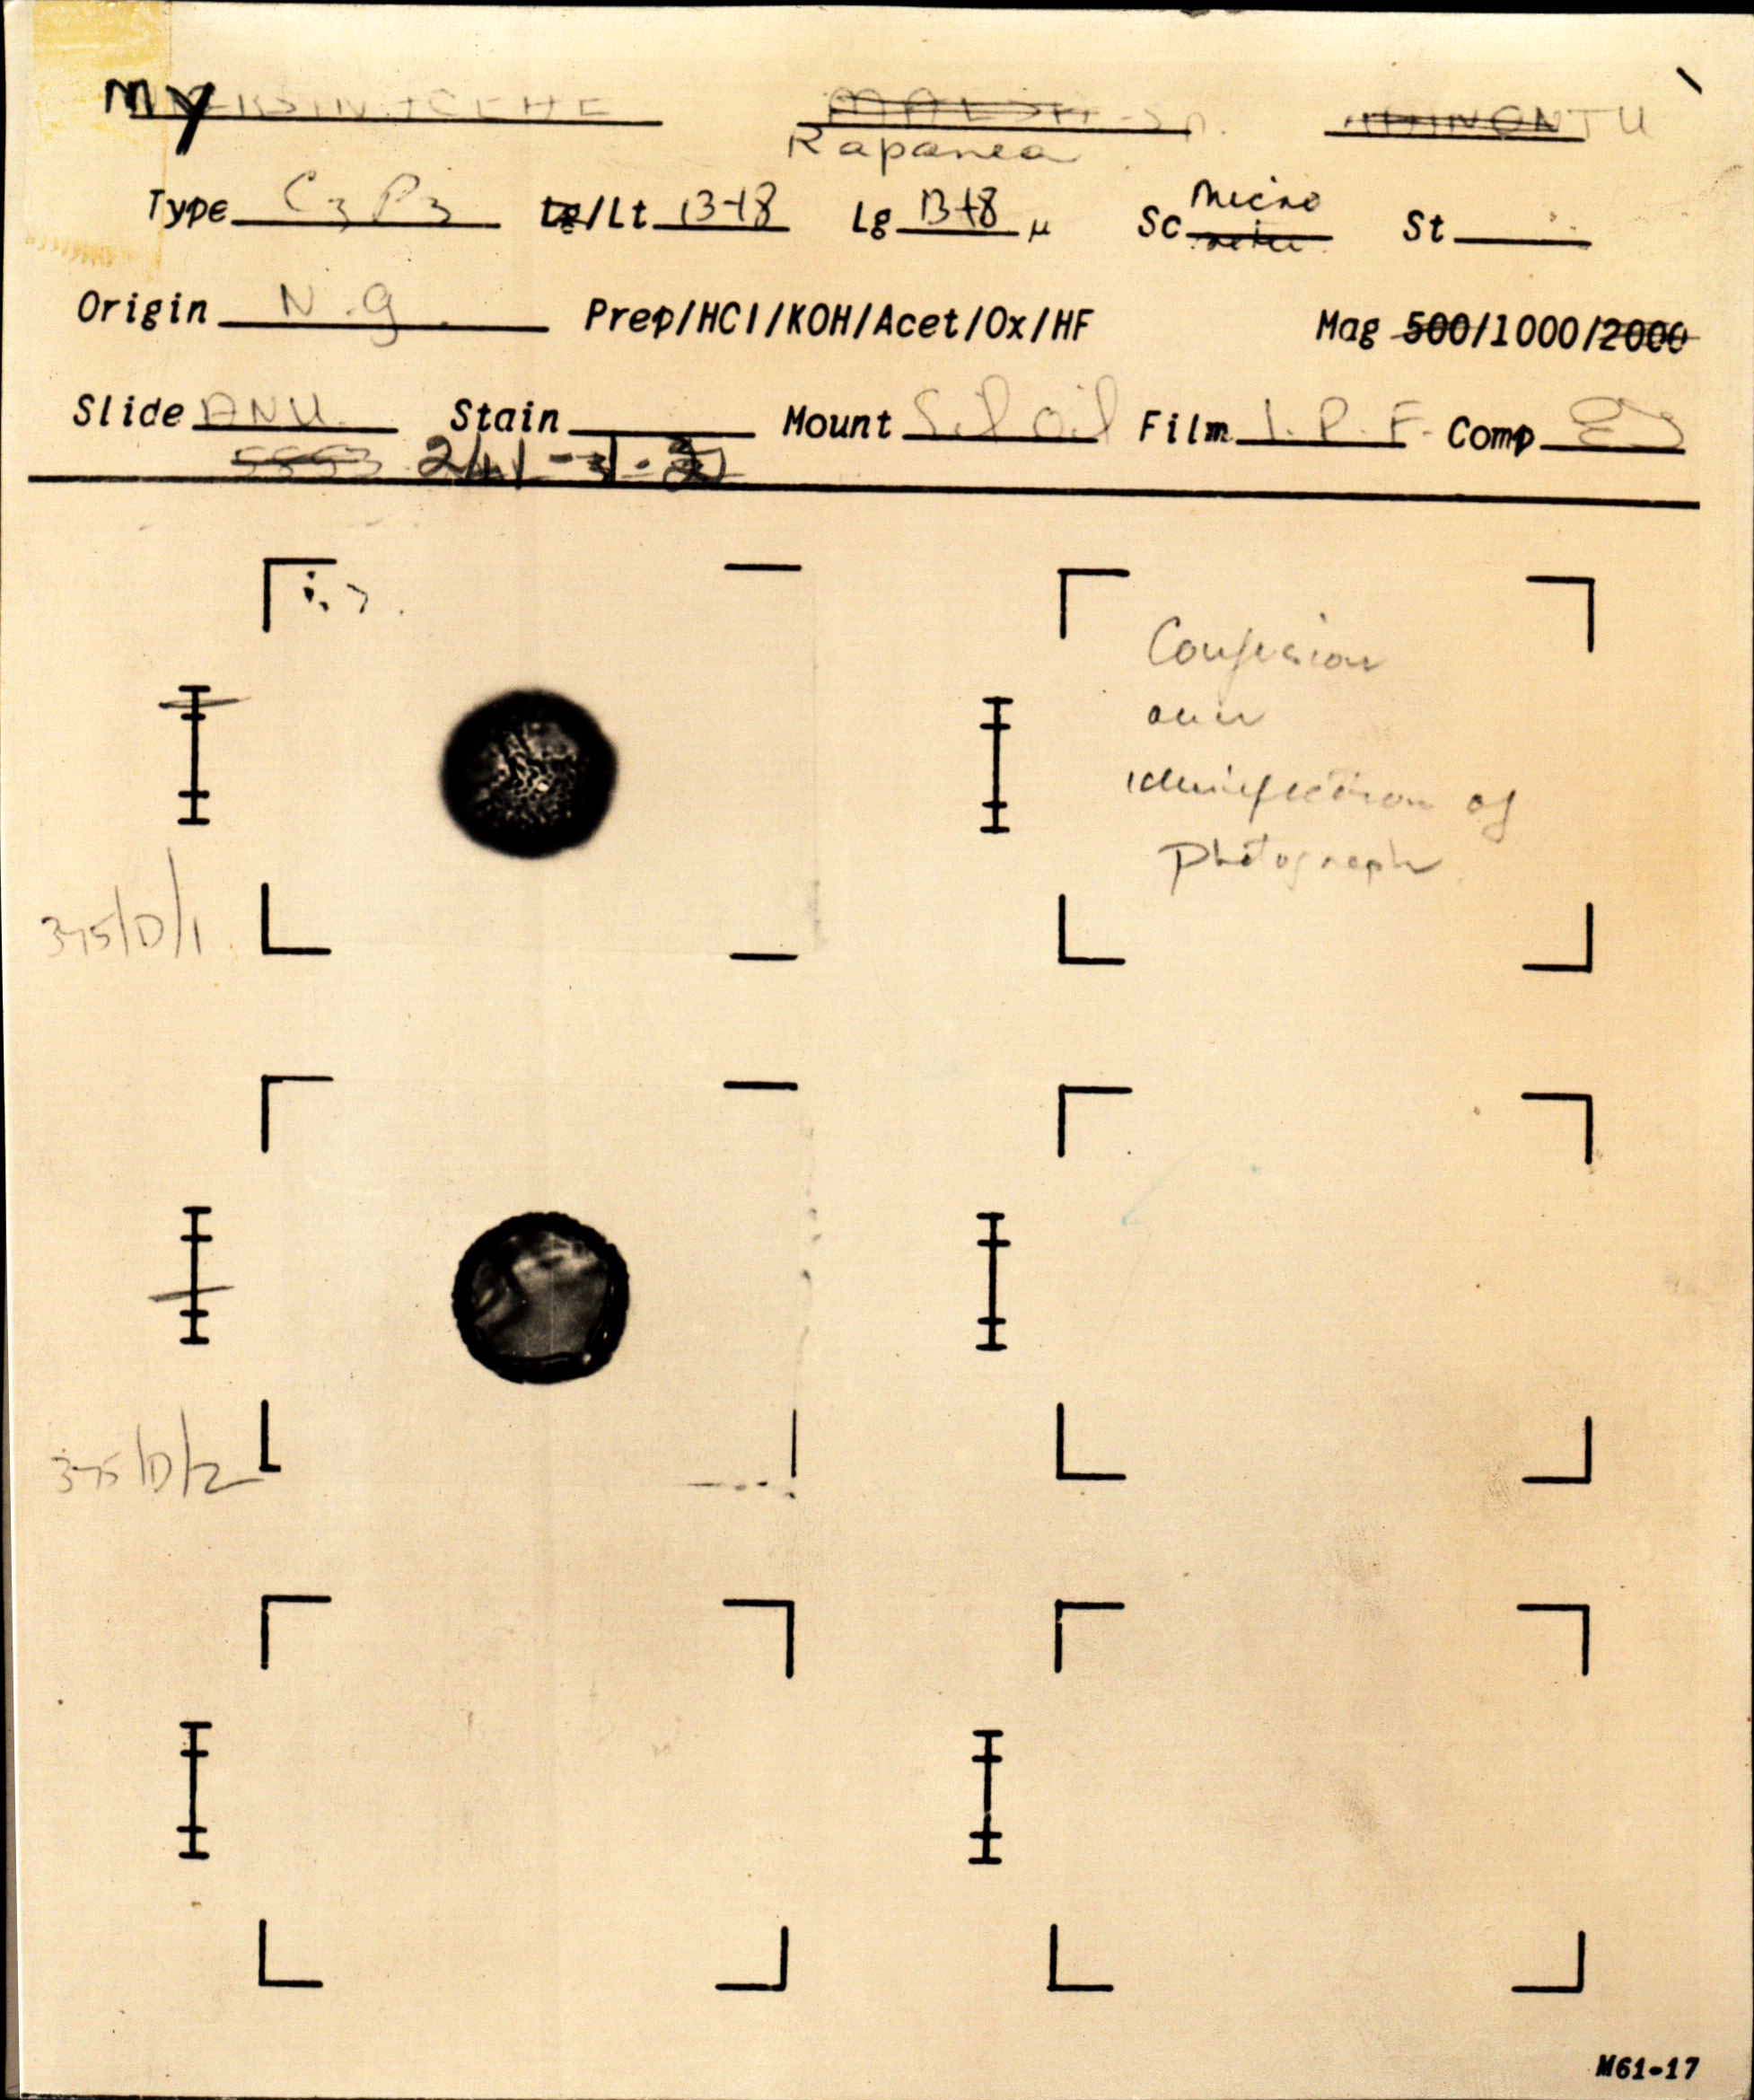 My MYRSINACEAE MAESA sp.
Rapanea
Type C3P3 Lg/Lt 13+8 Lg 13+8 µ Sc micro St
Origin N.g. Prep/HCl/KOH/Acet/Ox/HF Mag 500/1000/2000
Slide ANU Stain Mount Sil Oil Film I.P.F. Comp
5553 241-31-
Confusion
over
identification of
photograph
375/D/1
375/D/2
M61-17